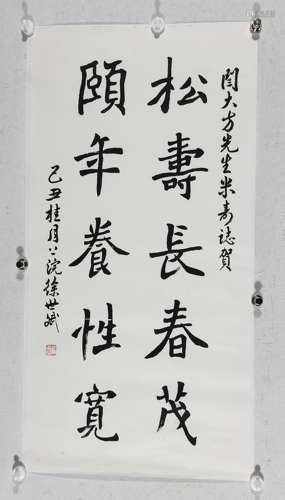 閻大方先生米壽誌賀
松壽長春茂
頤年養性寬
己丑桂月公浣徐世斌